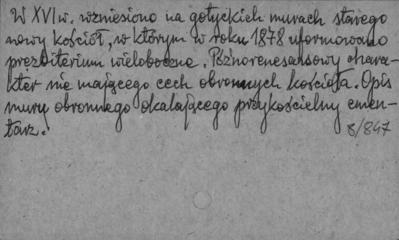 W XVI w. wzniesiono na gotyckich murach starego
nowy kościół, w którym w roku 1878 uformowano
prezbiterium wieloboczne. Późnorenesansowy chara-
kter nie mającego cech obronnych kościoła. Opis
muru obronnego okalającego przykościelny cmen-
tarz.
8/847